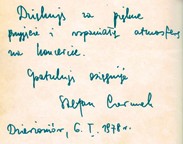 Dziękuję za piękne
przyjęcie i wspaniałą atmosferę
na koncercie.
Gratuluję osiągnięć
Stefan
Dzierżoniów, 6. I. 1978 r.